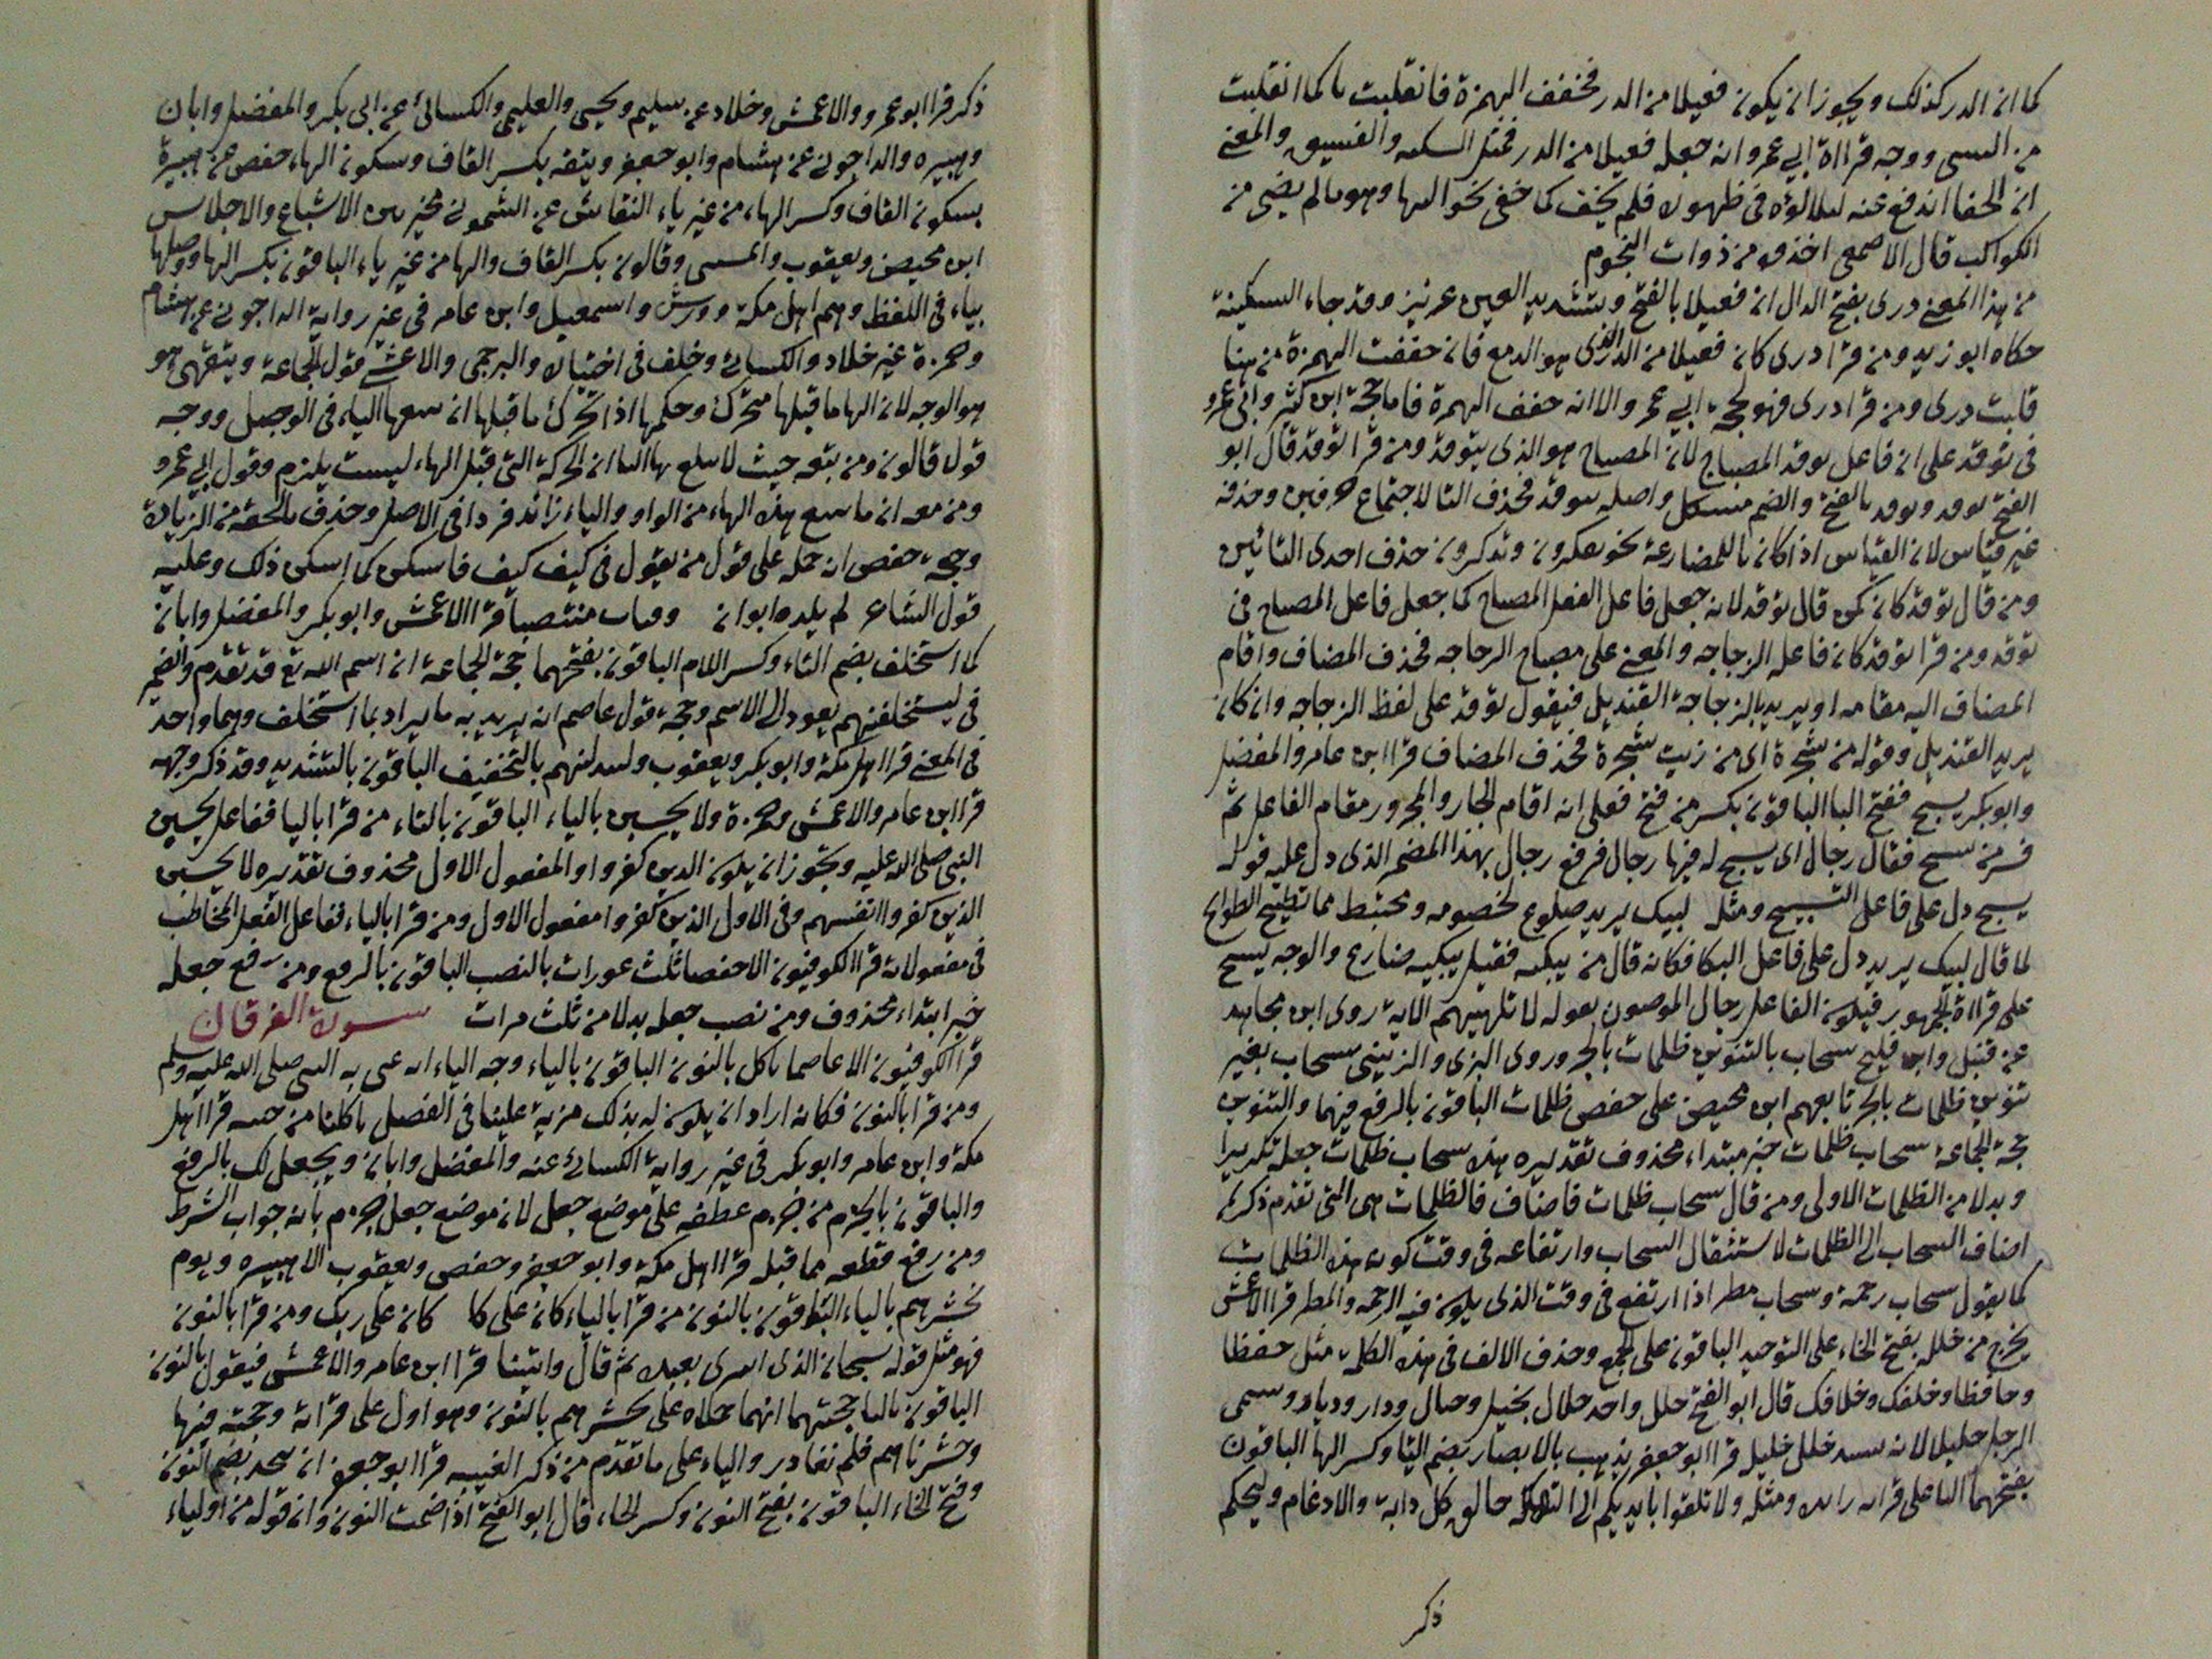 كما ان الدر كذلك ويجوز ان يكون فعيلا من الدر فخفف الهمزة فانقلبت يا كما انقلبت
من النسى ووجه قراءة ابي عمرو انه جعله فعيلا من الدر فمثل السكير والفسيق والمعنى
ان الخفا اندفع عنه لتلالؤه فى ظهوره فلم يخف كما خفى نحو السها وهو ما لم يضى من
الكواكب قال الاصمعى اخذه من ذوات النجوم
من هذا المعنى درى بفتح الدال ان فعيلا بالفتح وتشديد العين عزيز وقد جاء السكينة
حكاه ابو زيد ومن قرا درى كان فعيلا من الدر الذى هو الدمع فان خففت الهمزة من هنا
قلبت درى ومن قرا درى فهو لحجة ابي عمرو الا انه خفف الهمزة فاما حجة ابن كثير وابى عمرو
فى توقد على ان فاعل توقد المصباح لان المصباح هو الذى يتوقد ومن قرا توقد قال ابو
الفتح توقد ويوقد بالفتح والضم مشكل واصله يتوقد فحذف التا لاجتماع حرفين وحذفه
غير قياس لان القياس اذا كان تا للمضارعة نحو تفكرون وتذكرون حذف احدى التائين
ومن قال توقد كان كمن قال توقد لانه جعل فاعل الفعل المصباح كما جعل فاعل المصباح فى
توقد ومن قرا توقد كان فاعله الزجاجه والمعنى على مصباح الزجاجه فحذف المضاف واقام
المضاف اليه مقامه او يريد بالزجاجة القنديل فيقول توقد على لفظ الزجاجه وان كان
يريد القنديل وقوله من شجرة اى من زيت شجرة فحذف المضاف قرا ابن عامر والمفضل
وابو بكر يسبح ففتح البا الباقون بكسر من فتح فعلى انه اقام الجار والمجرور مقام الفاعل ثم
فسر من يسبح فقال رجال اى يسبح له فيها رجال فرفع رجال بهذا المضمر الذى دل عليه قوله
يسبح دل على فاعل التسبيح ومثله لبيك يريد ضارع لخصومه ومختبط مما تطيح الطوايح
لما قال لبيك يريد دل على فاعل البكا فكانه قال من يبكيه فقيل يبكيه ضارع والوجه يسبح
على قراءة الجمهور فيكون الفاعل رجال الموصوفون بقوله لا تلهيهم الاية روى ابن مجاهد
عن قنبل وابن فليح سحاب بالتنوين ظلمات بالجر وروى البزى والزينبى سحاب بغير
تنوين ظلمات بالجر تابعهم ابن محيصن على خفض ظلمات الباقون بالرفع فيهما والتنوين
حجة الجماعة سحاب ظلمات خبر مبتداء محذوف تقديره هذه سحاب ظلمات جعله تكريرا
وبدلا من الظلمات الاولى ومن قال سحاب ظلمات فاضاف فالظلمات هى التى تقدم ذكرها
اضاف السحاب الى الظلمات لاستثقال السحاب وارتفاعه فى وقت كون هذه الظلمات
كما يقول سحاب رحمة وسحاب مطر اذا ارتفع فى وقت الذى يكون فيه الرحمه والمطر قرا الاعمش
يخرج من خلله بفتح الخاء على التوحيد الباقون على الجمع وحذف الالف فى هذه الكلمة مثل حفظا
وحافظا وخلفك وخلافك قال ابو الفتح خلل واحد خلال بخيل وجبال ودار وديار وسمى
الرجل خليلا لانه يسد خلل خليله قرا ابو جعفر يذهب بالابصار بضم اليا وكسر الها الباقون
بفتحهما البا على قراءته زايده ومثله ولا تلقوا بايديكم الى التهلكه خالق كل دابة والادغام وليحكم
ذكر
ذكر قرا ابو عمرو والاعمش وخلاد عن سليم ويحيى والعليمى والكسائى عن ابى بكر والمفضل وابان
وهبيره والداجونى عن هشام وابو جعفر ويتقه بكسر القاف وسكون الهاء حفص عن هبيرة
بسكون القاف وكسر الهاء من غير ياء النقاش عن الشمونى مخير بين الاشباع والاختلاس
ابن محيصن ويعقوب والمسيبى وقالون بكسر القاف والها من غير ياء الباقون بكسر الها ووصلها
بياء فى اللفظ وهم اهل مكة وورش واسمعيل وابن عامر فى غير رواية الداجونى عن هشام
وحمزة غير خلاد والكسائى وخلف فى اختياره والبرجمى والاعشى قول الجماعة ويتقهى هو
هو الوجه لان الها ما قبلها متحرك وحكمها اذا تحرك ما قبلها ان يتبعها الياء فى الوصل ووجه
قول قالون ومن تبعه حيث لا يبلغ بها اليا ان الحركة التى قبل الهاء ليست يلزم وقول ابي عمرو
ومن معه ان ما يتبع هذه الهاء من الواو والياء زائد فردا فى الاصل وحذف ما لحقه من الزيادة
وحجة حفص انه حمله على قول من يقول فى كيف كيف فاسكن كما اسكن ذلك وعليه
قول الشاعر لم يلده ابوان وبات منتصبا قرا الاعمش وابو بكر والمفضل وابان
كما استخلف بضم التاء وكسر اللام الباقون بفتحهما حجة الجماعة ان اسم الله تع قد تقدم والضمير
فى ليستخلفنهم يعود الى الاسم وحجة قول عاصم انه يريد به ما يراد بما استخلف وهما واحد
فى المعنى قرا اهل مكة وابو بكر ويعقوب وليبدلنهم بالتخفيف الباقون بالتشديد وقد ذكر وجهه
قرا ابن عامر والاعمش وحمزة ولا يحسبن بالياء الباقون بالتاء من قرا باليا ففاعل يحسبن
النبى صلى الله عليه ويجوز ان يكون الذين كفروا والمفعول الاول محذوف تقديره لا يحسبن
الذين كفروا انفسهم وفى الاول الذين كفروا مفعول الاول ومن قرا بالياء ففاعل الفعل المخاطب
فى مفعولاته قرا الكوفيون الا حفصا ثلث عورات بالنصب الباقون بالرفع ومن رفع جعله
خبر ابتداء محذوف ومن نصب جعله بدلا من ثلث مرات سورة الفرقان
قرا الكوفيون الا عاصما ناكل بالنون الباقون بالياء وجه الياء انه عنى به النبى صلى الله عليه وسلم
ومن قرا بالنون فكانه اراد ان يكون له بذلك مزية علينا فى الفضل باكلنا من جنته قرا اهل
مكة وابن عامر وابو بكر فى غير رواية الكسائى عنه والمفضل وابان ويجعل لك بالرفع
والباقون بالجزم من جزم عطفه على موضع جعل لان موضع جعل جزم بانه جواب الشرط
ومن رفع فقطعه مما قبله قرا اهل مكة وابو جعفر وحفص ويعقوب الا هبيره ويوم
نحشرهم بالياء الباقون بالنون من قرا بالياء كان على كا كان على ربك ومن قرا بالنون
فهو مثل قوله سبحان الذى اسرى بعبده ثم قال واتينا قرا ابن عامر والاعمش فيقول بالنون
الباقون باليا حجتهما انهما حملاه على نحشرهم بالنون وهو اول على قراته وحجته فيها
وحشرناهم فلم نغادر والياء على ما تقدم من ذكر الغيبه قرا ابو جعفر ان نتخذ بضم النون
وفتح الخاء الباقون بفتح النون وكسر الخاء قال ابو الفتح اذا ضمت النون وان قوله من اولياء